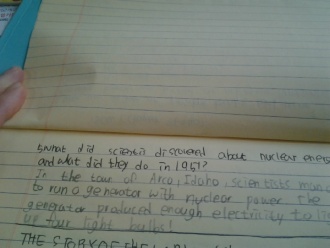 5. What did scientis discoveral about nuclear energ
and what did they do in 1951?
In the town of Arco, Idaho, scientists man
to run a generator with nuclear power the
generator produced enough electricity to li
up four light bulbs!
THE STORY OF THE